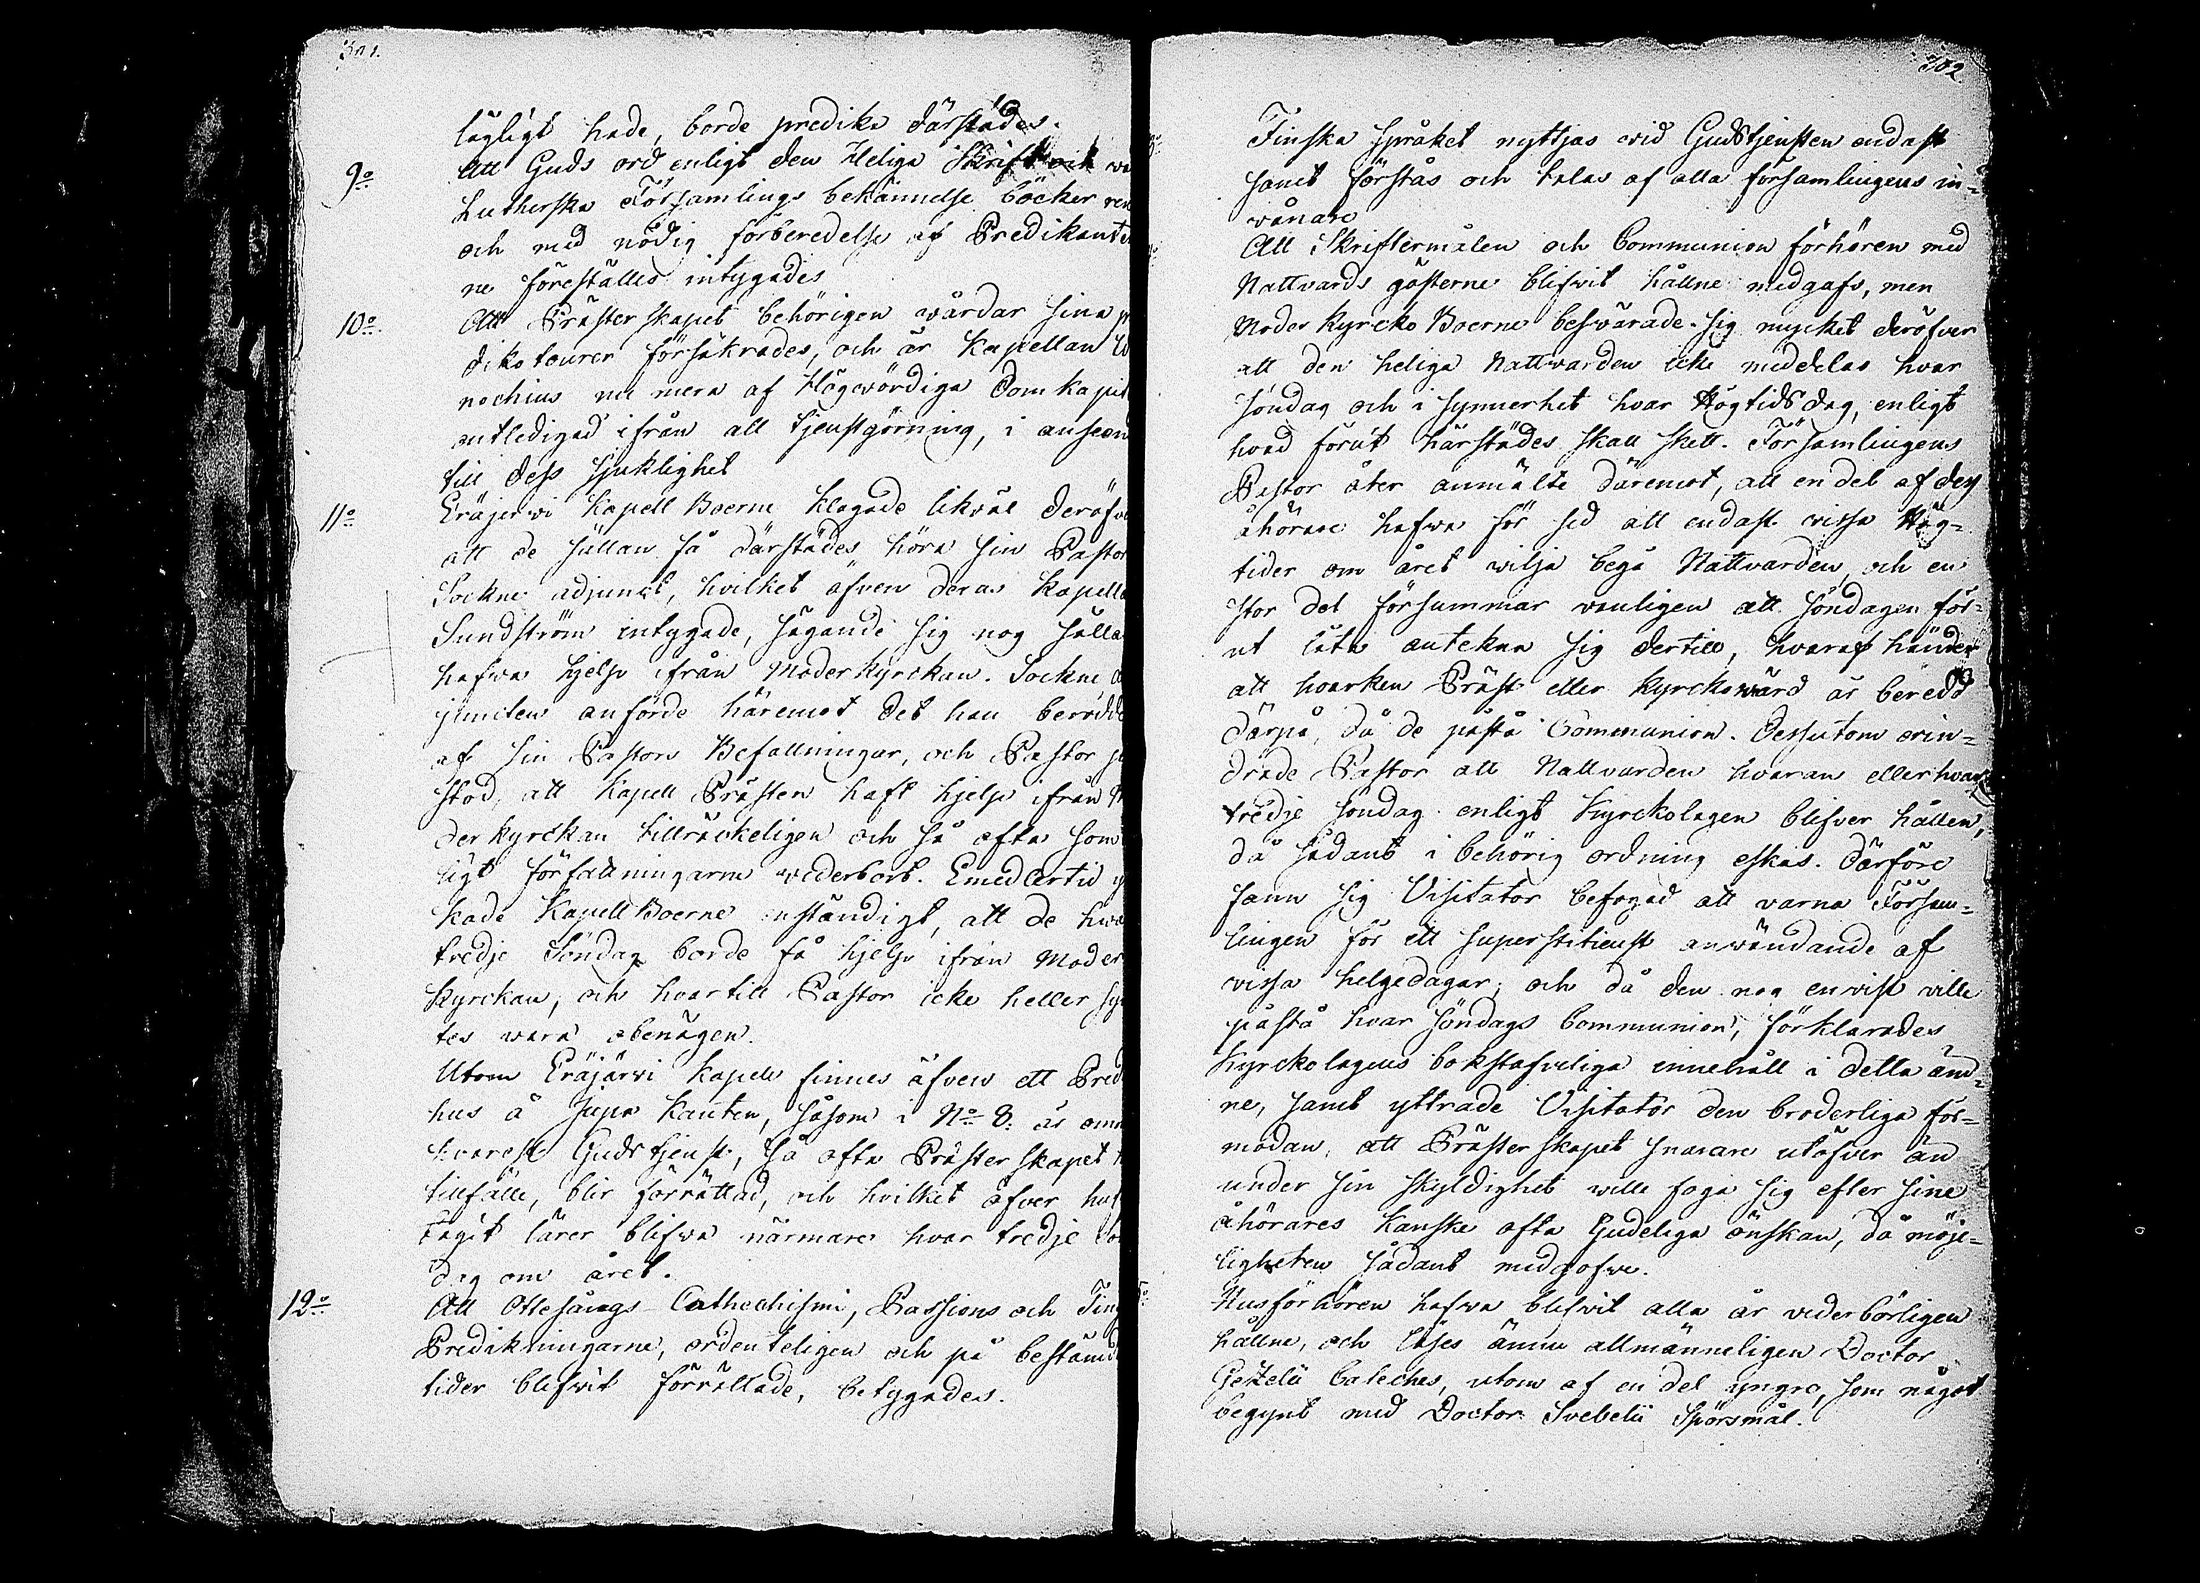 301.
lägligt hade, borde predika därstädes.
9:o Att Guds ord enligt den Heliga Skrift och
Lutherska Församlings bekännelse böcker
och med nödig förberedelse af Predikante
ne föreställes intygades
10:o Att Prästerskapet behörigen wårdar sina
diko tourer försäkrades, och är Kapellan
nochius nu mera af Högwördiga Domkapit
entledigad ifrån all tjenstgörning, i anseen
till dess sjuklighet
11:o Eräjerwi Kapell Boerne klagade likväl deröfve
att de sällan få därstädes höra sin Pastor
Sockne adjunct, hvilket äfven deras Kapella
Sundström intygade, sägande sig nog sälla
hafwa hjelp ifrån Moderkyrckan. Sockne a
juncten anförde häremot det han berodde
af sin Pastors Befallningar, och Pastor
stod, att Kapell Prästen haft hjelp ifrån
derkyrckan tillräckeligen och så ofta som
ligt förfallningarne
kade Kapell Boerne enständigt, att de hwa
tredje Söndag borde få hjelp ifrån Moder
Kyrckan, och hvartill Pastor icke heller syn
tes wara obenägen.
Utom Eräjärvi Kapell finnes äfven ett Pred
hus å Jupa Kanten, såsom i No 8. är
hvarest Gudstjenst, så ofta Prästerskapet
tillfälle, blir förrättad, och hvilket öfver huf
taget lärer blifwa närmare hvar tredje
dag om året.
12:o Att Ottesångs Cathechismi, Passions och
Predikningarne, ordenteligen och på bestämd
tider blifwit förrättade, betygades.
302
Finska språket nyttjas wid Gudstjensten endast
samt förstås och talas af alla församlingens in-
vånare
Att Skriftermålen och Communion förhören med
Nattvards gästerne blifwit hållne medgafs, men
Moder kyrcko Boerne beswärade sig mycket deröfver
att den heliga Nattwarden icke meddelas hvar
söndag och i synnerhet hvar Högtidsdag, enligt
hvad förut härstädes skall skett. Församlingens
Pastor åter anmälte däremot, att en del af dess
åhörare hafwa för sed att endast wissa Hög-
tider om året wilja begå Nattvarden, och en
stor del försummar vanligen att söndagen för-
ut låta anteckna sig dertill, hvaraf händer
att hvarken Präst eller kyrckowärd är beredd
därpå, då de påstå Communion. Dessutom erin-
drade Pastor att Nattvarden hvaran eller hvar
tredje söndag enligt Kyrckolagen blifver hållen,
då sådant i behörig ordning eskas. Därföre
fann sig Visitator befogad att varna Försam-
lingen för ett superstitieust anwändande af
vissa helgedagar, och då den nog envist ville
påstå hvar söndags Communion, förklarades
Kyrckolagens bokstafveliga innehåll i detta äm-
ne, samt yttrade Visitator den broderliga för-
modan, att Prästerskapet snarare utöfver än
under sin skyldighet wille foga sig efter sine
åhörares kanske ofta Gudeliga önskan, då möje-
ligheten sådant medgofve.
Husförhören hafwa blifvit alla år vederbörligen
hållne, och läses ännu allmänneligen Doctor
Gezelii Cateches, utom af en del yngre, som något
begynt med Doctor Svebelii Spörsmål.